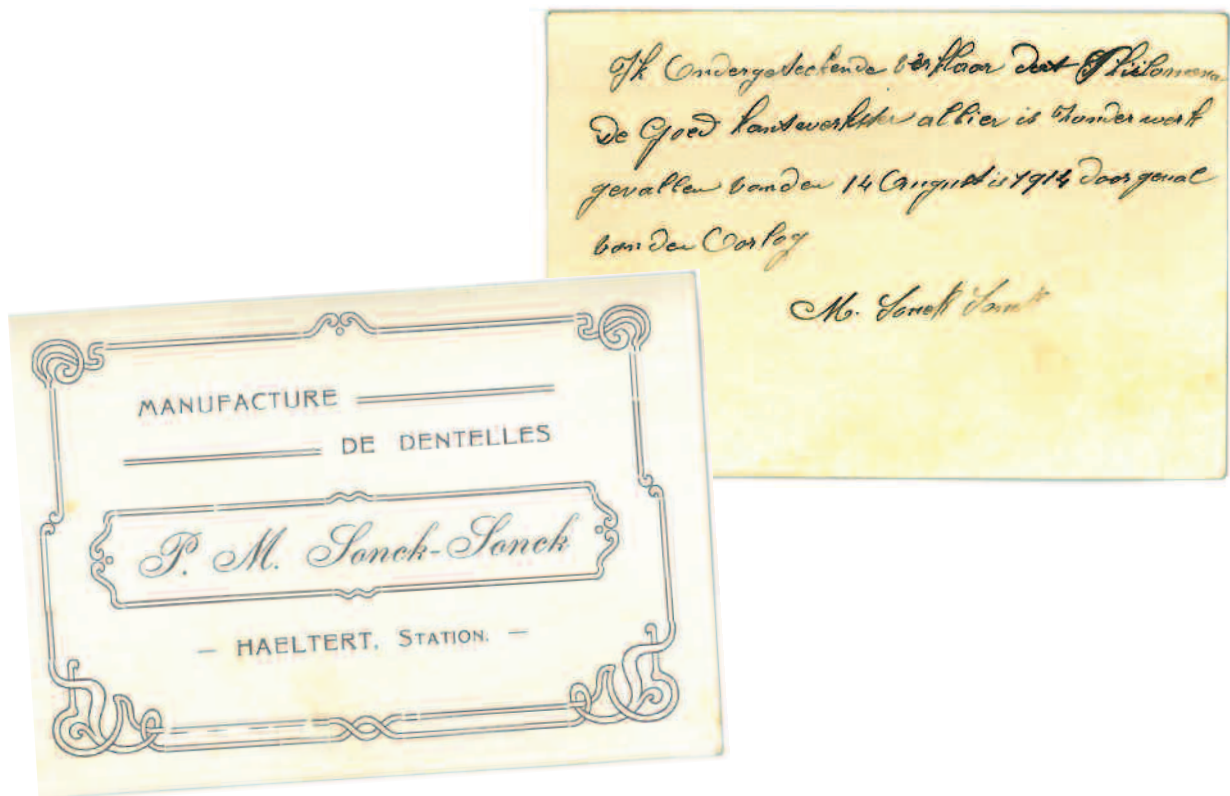 Ik Ondergeteekende verklaar dat Philomena
De Goed kantwerkster alhier is zonder werk
gevallen van den 14 Augustis 1914 door geval
van den Oorlog
M. Sonck Sonck
MANUFACTURE
DE DENTELLES
P. M. Sonck-Sonck
— HAELTERT. STATION. —